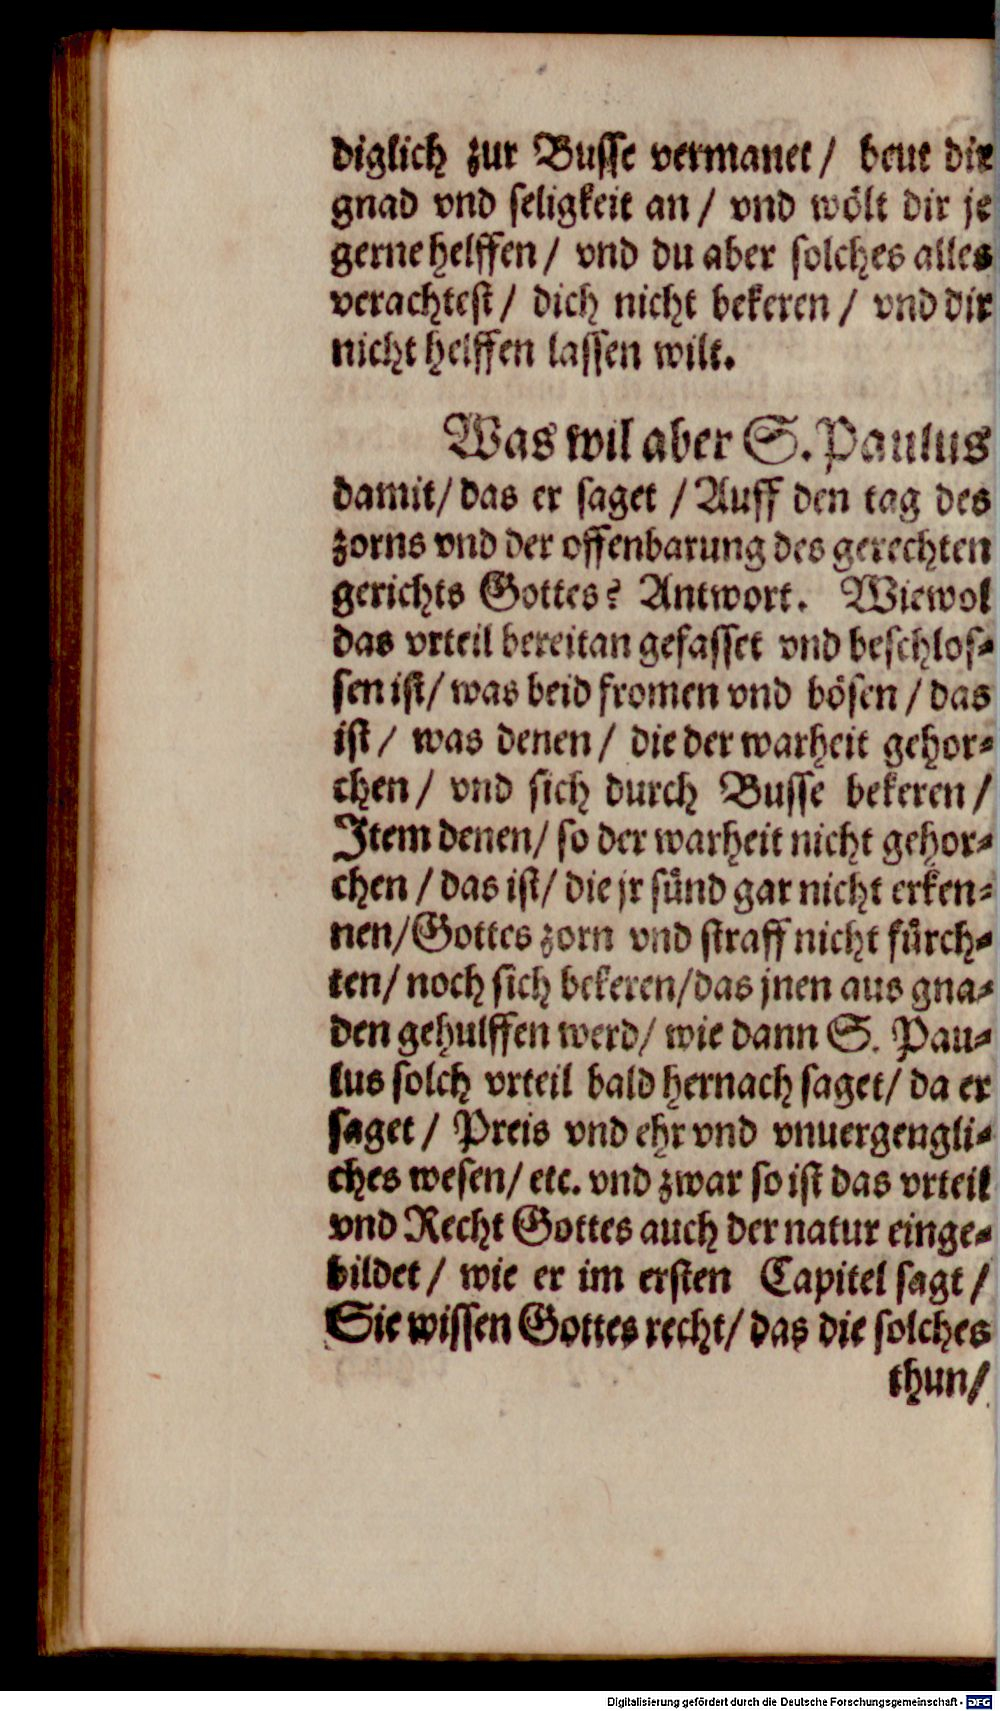 diglich zur Busse vermanet / beut dir
gnad vnd seligkeit an / vnd wölt dir je
gerne helffen / vnd du aber solches alles
verachtest / dich nicht bekeren / vnd dir
nicht helffen lassen wilt.
Was wil aber S. Paulus
damit / das er saget / Auff den tag des
zorns vnd der offenbarung des gerechten
gerichts Gottes? Antwort. Wiewol
das vrteil bereitan gefasset vnd beschlos-
sen ist / was beid fromen vnd bösen / das
ist / was denen / die der warheit gehor-
chen / vnd sich durch Busse bekeren /
Item denen / so der warheit nicht gehor-
chen / das ist / die jr sünd gar nicht erken-
nen / Gottes zorn vnd straff nicht fürch-
ten / noch sich bekeren / das jnen aus gna-
den gehulffen werd / wie dann S. Pau-
lus solch vrteil bald hernach saget / da er
saget / Preis vnd ehr vnd vnuergengli-
ches wesen / etc. vnd zwar so ist das vrteil
vnd Recht Gottes auch der natur einge-
bildet / wie er im ersten Capitel sagt /
Sie wissen Gottes recht / das die solches
thun /
Digitalisierung gefördert durch die Deutsche Forschungsgemeinschaft - DFG